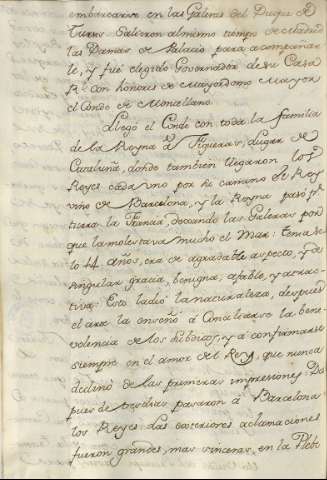 embarcarse en las Galeras del Duque de
Tursis. Salieron al mismo tiempo de Madrid
las Damas de Palacio para acompañar
le, y fué elegido Governador de su Casa
Rl. con honores de Mayordomo Mayor
el Conde de Montellano.
Llegó el Conde con toda la familia
de la Reyna à Figueras, Lugar de
Cataluña, donde tambien llegaron los
Reyes cada uno por su camino: el Rey
vino de Barcelona, y la Reyna pasó p.r
tierra la Francia, dexando las Galeras por
que la molestava mucho el Mar: tenia so
lo 14 años, era de agradable aspecto, y de
singular gracia, benigna, afable, y atrac
tiva. Esto la dió la naturaleza, despues
el arte la enseñó à conciliarse la bene
volencia de los subditos, y à confirmarse
siempre en el amor del Rey, que nunca
declinó de las primeras impresiones. Des
pues de tres dias pasaron à Barcelona
los Reyes: las exteriores aclamaciones
fueron grandes, mas sinceras, en la Plebe